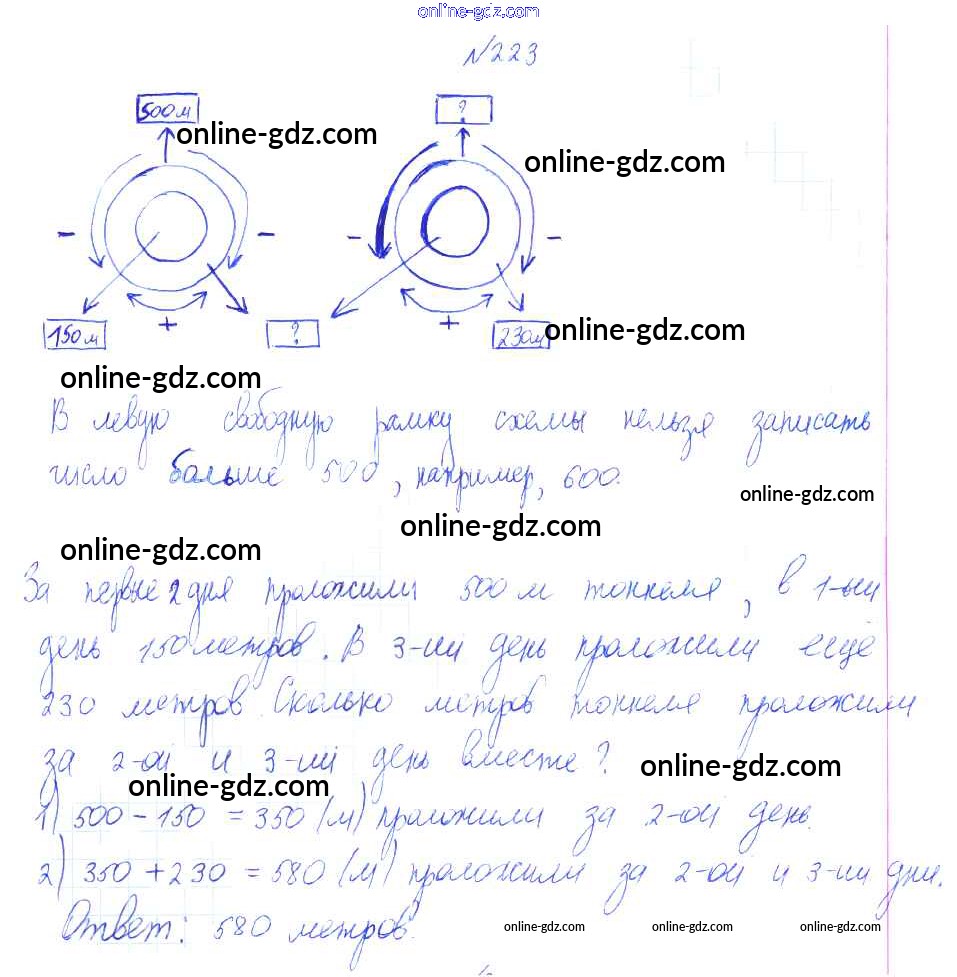 online-gdz.com
№223
500м ?
online-gdz.com
online-gdz.com
- - - -
150м + ? + 230м
online-gdz.com
online-gdz.com
В левую свободную рамку схемы нельзя записать
число больше 500, например, 600.
online-gdz.com
online-gdz.com
online-gdz.com
За первые 2 дня проложили 500 м тоннеля, в 1-ый
день 150 метров. В 3-ий день проложили ещё
230 метров. Сколько метров тоннеля проложили
за 2-ой и 3-ий день вместе?
online-gdz.com
online-gdz.com
1) 500 - 150 = 350 (м) проложили за 2-ой день.
2) 350 + 230 = 580 (м) проложили за 2-ой и 3-ий дни.
Ответ: 580 метров.
online-gdz.com online-gdz.com online-gdz.com